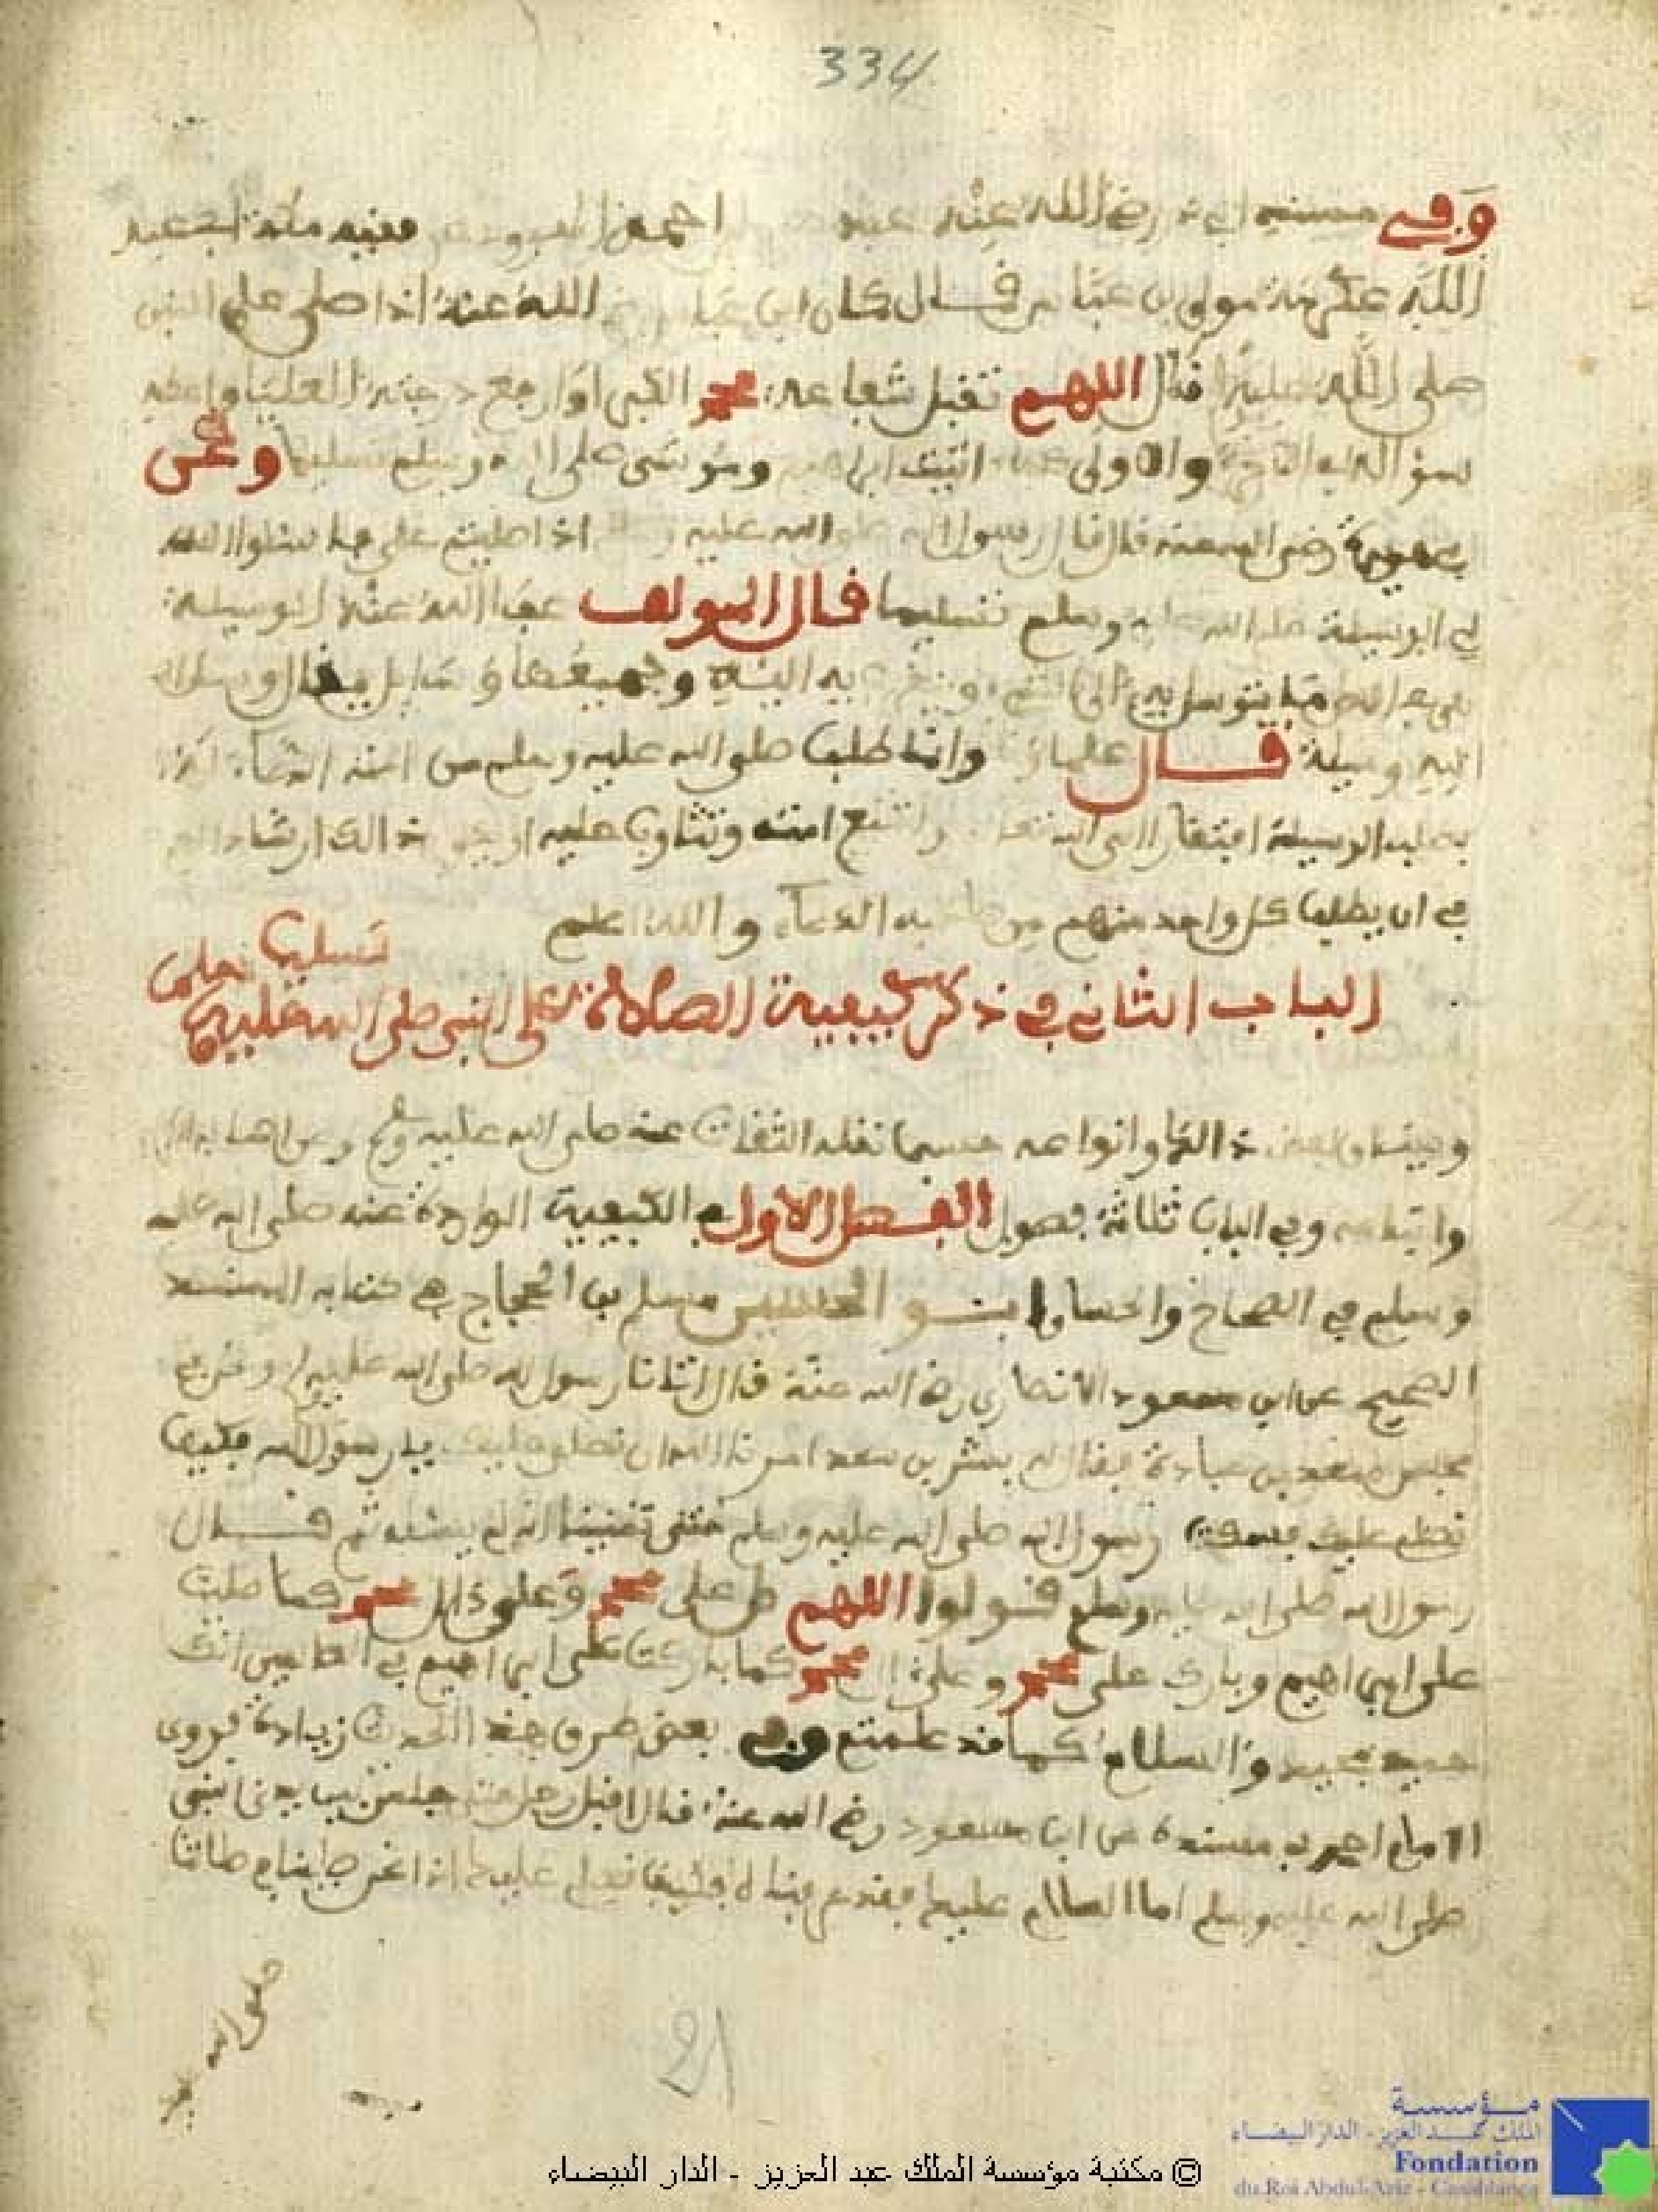 334
وفي مسند ابي ذر رضي الله عنه عبد
الله عكرمة مولى بن عباس قال كان ابن عباس رضي الله عنه اذا صلى على النبي
صلى الله عليه قال اللهم تقبل شفاعة محمد الكبرى وارفع درجته العليا واعطه
سؤاله في الاخرة والاولى كما اتيت ابراهيم وموسى صلى الله وسلم تسليما وعن
ابي هريرة رضي الله عنه قال قال رسول الله صلى الله عليه وسلم اذا صليتم علي فاسئلوا الله
لي الوسيلة صلى الله عليه وسلم تسليما قال المؤلف عفا الله عنه الوسيلة
ما يتوسل به الى الشيء ويتقرب به اليه وجمعها وسايل يقال وسل الى
اليه وسيلة قال علماؤنا وانما طلب صلى الله عليه وسلم من امته الدعاء له
بطلب الوسيلة افتقارا الى الله تعالى ولتنتفع امته وتثاب عليه او يكون ذالك ارشادا لهم
في ان يطلب كل واحد منهم من صاحبه الدعاء والله اعلم
الباب الثاني في ذكر كيفية الصلاة على النبي صلى الله عليه وسلم تسليما
ذالك وانواعه حسبما نقله الثقات عنه صلى الله عليه وسلم وعن اصحابه
واتباعه وفي الباب ثلاثة فصول الفصل الاول في الكيفية الواردة عنه صلى الله عليه
وسلم في الصحاح والحسان ابو الحسين مسلم بن الحجاج في كتابه المسند
الصحيح عن ابي مسعود الانصاري رضي الله عنه قال اتانا رسول الله صلى الله عليه وسلم ونحن في
مجلس سعد بن عبادة فقال له بشير بن سعد امرنا الله ان نصلي عليك يا رسول الله فكيف
نصلي عليك فسكت رسول الله صلى الله عليه وسلم حتى تمنينا انه لم يسئله ثم قال
رسول الله صلى الله عليه وسلم قولوا اللهم صل على محمد وعلى ءال محمد كما صليت
على ابراهيم وبارك على محمد وعلى ءال محمد كما باركت على ابراهيم في العالمين انك
حميد مجيد والسلام كما قد علمتم وفي بعض طرق هذا الحديث زيادة فروى
الامام احمد في مسنده عن ابي مسعود رضي الله عنه قال اقبل رجل حتى جلس بين يدي النبي
صلى الله عليه وسلم اما السلام عليك فقد عرفناه فكيف نصلي عليك اذا نحن صلينا في صلاتنا
صلى الله
21
© مكتبة مؤسسة الملك عبد العزيز - الدار البيضاء
مؤسسة
الملك عبد العزيز - الدار البيضاء
Fondation
du Roi Abdul-Aziz - Casablanca